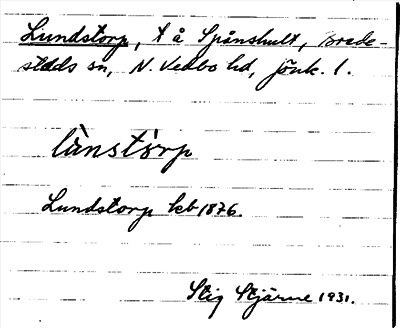 Lundstorp, t å Spånshult, Brede-
stads sn, N. Vedbo hd, Jönk. l.
lùnstòrp
Lundstorp kb 1876.
Stig Stjärne 1931.